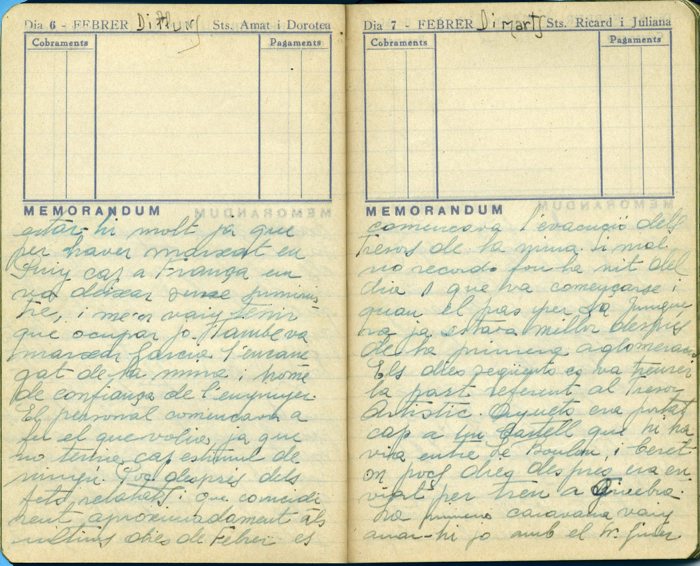 Dia 6 - FEBRER Dilluns Sts. Amat i Dorotea
Cobraments Pagaments
MEMORANDUM
estar-hi molt ja que
per haver marxat en
Puig cap a França em
va deixar sense suminis-
tres, i me'n vaig tenir
que ocupar jo. També va
marxar Garcia l'encarre-
gat de la mina i home
de confiança de l'enginyer.
El personal començava a
fer el que volia, ja que
no tenia cap estimul de
ningú. Poc després dels
fets relatats i que coincidi-
rent aproximadament als
ultims dies de Febrer es
Dia 7 - FEBRER Dimarts Sts. Ricard i Juliana
Cobraments Pagaments
MEMORANDUM
començava l'evacuació dels
tresors de la mina. Si mal
no recordo fou la nit del
dia 1 que va començarse i
quan el pas per La Junque-
ra ja estava millor després
de la primera aglomeració
Els dies següents es va treure
la part referent al Tresor
Artistic. Aquets era portat
cap a un Castell que hi ha
via entre le Boulou, i Ceret
on pocs dies despres era en-
viat per tren a Ginebra
La primera caravana vaig
anar-hi jo amb el Sr.